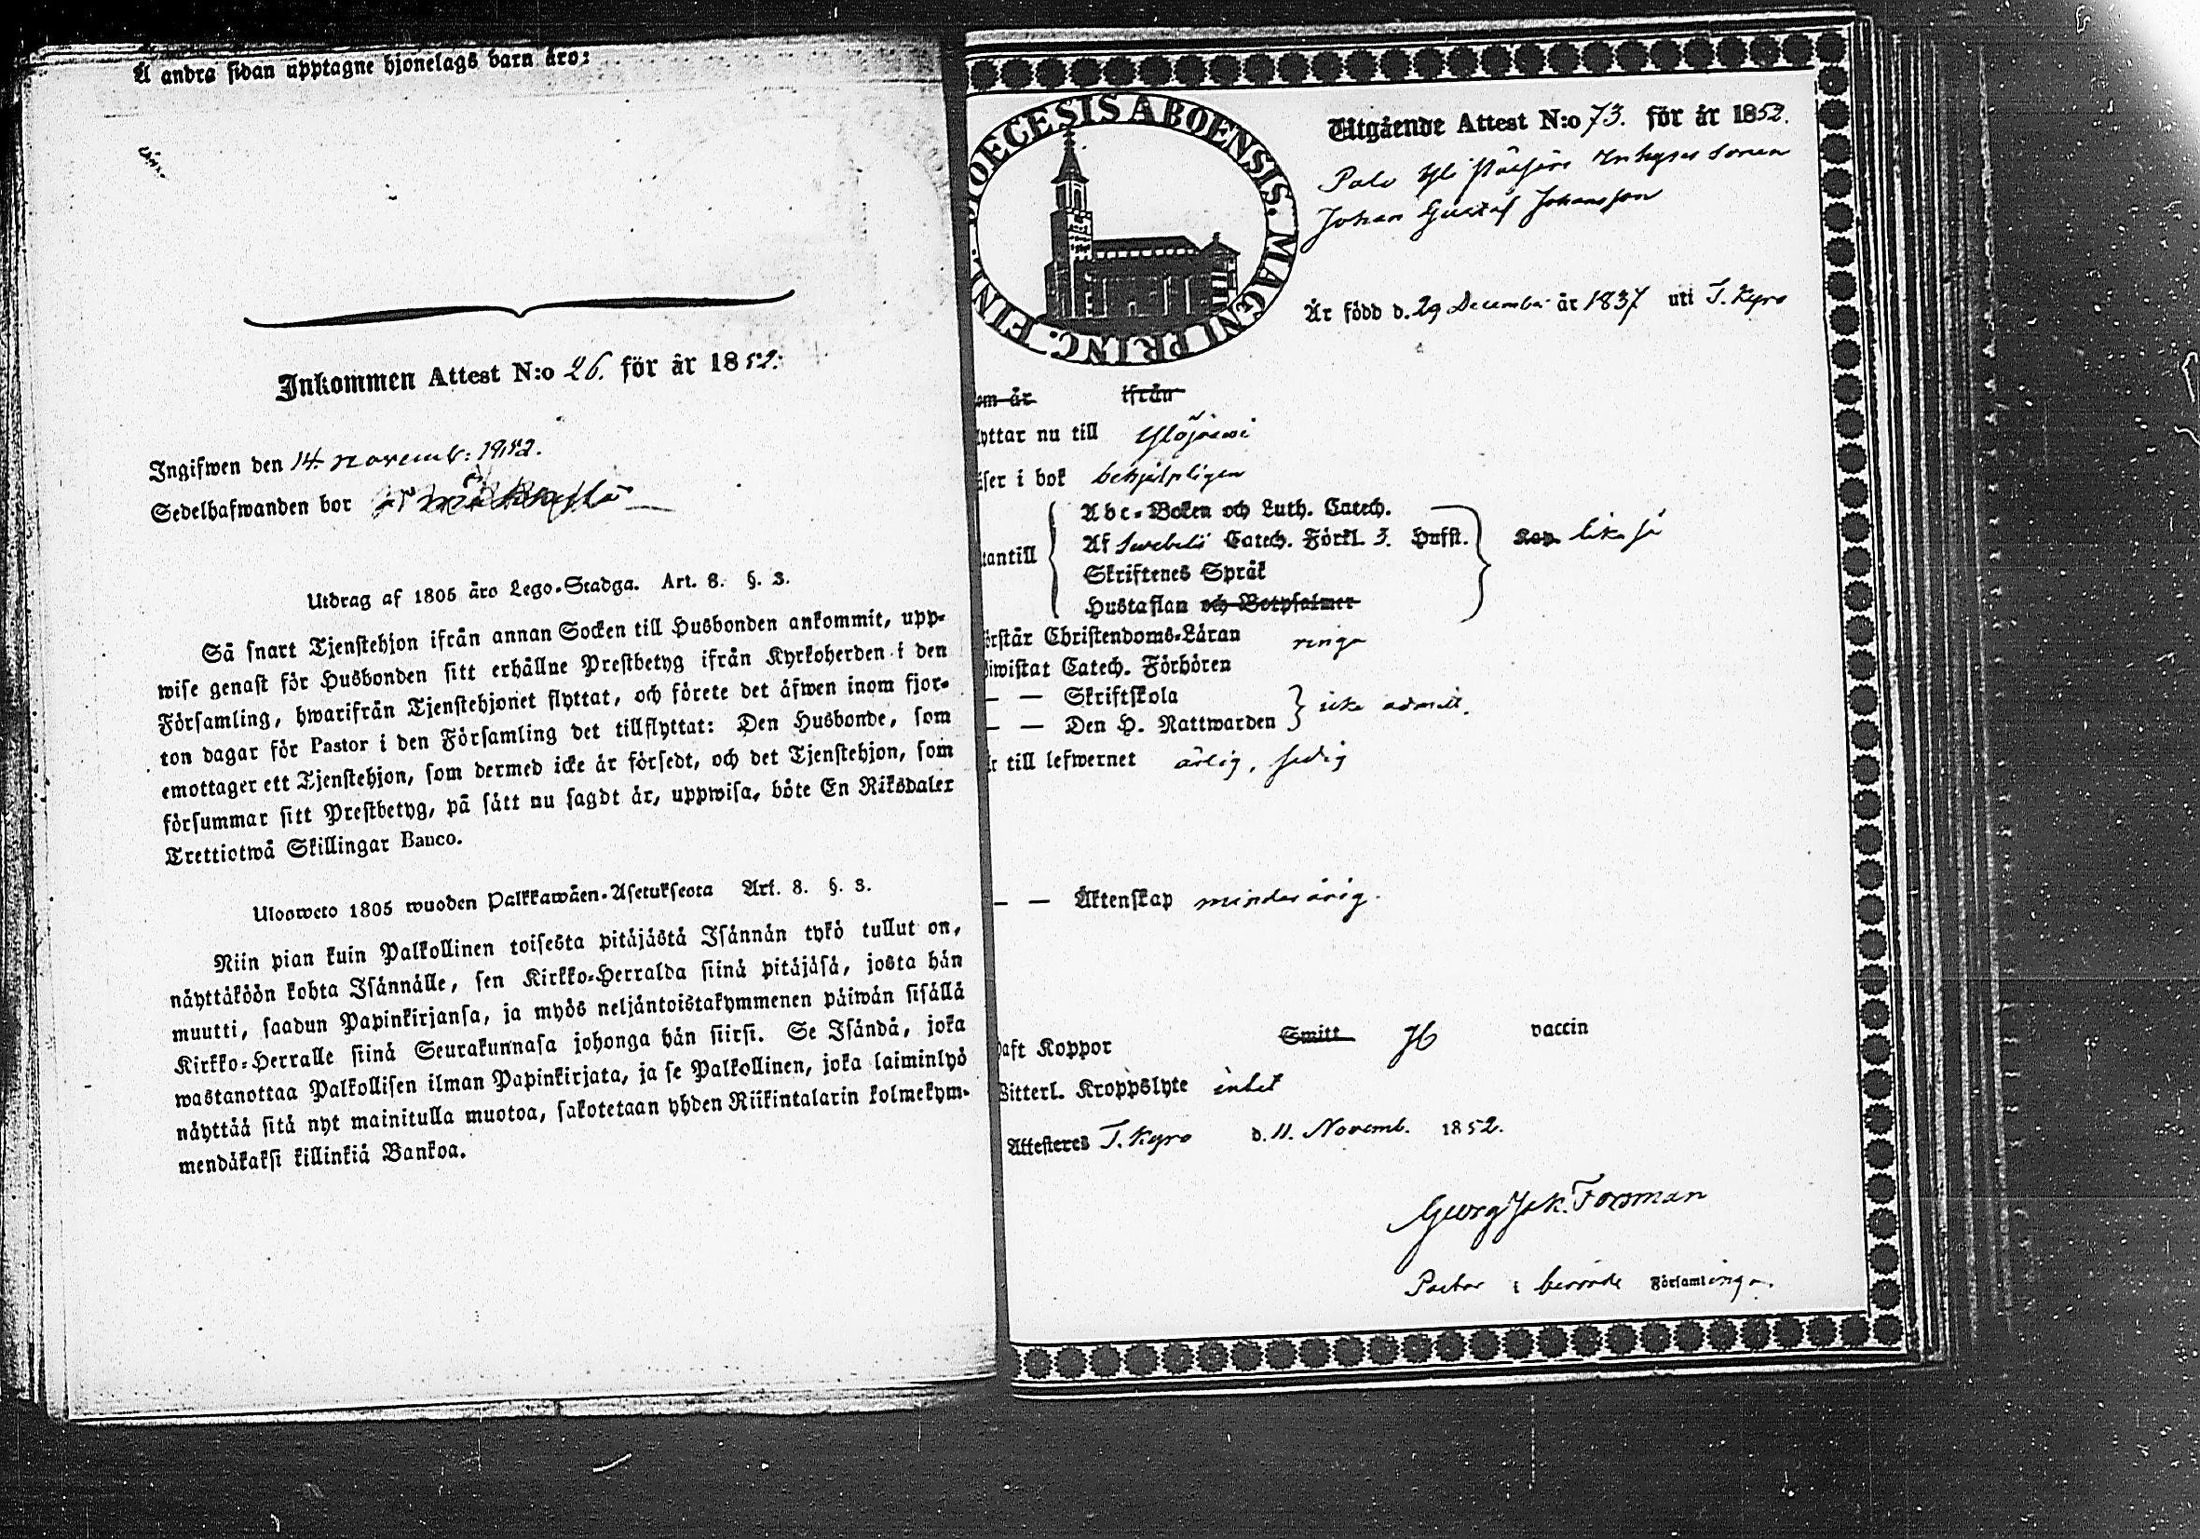 Å andra sidan upptagne hjonelags barn äro:
Inkommen Attest N:o 26. för år 1852.
Ingifwen den 14. novemb: 1852.
Sedelhafwanden bor
Utdrag af 1805 års Lego-Stadga. Art. 8. §. 3.
Så snart Tjenstehjon ifrån annan Socken till Husbonden ankommit, upp-
wise genast för Husbonden sitt erhållne Prestbetyg ifrån Kyrkoherden i den
Församling, hwarifrån Tjenstehjonet flyttat, och förete det äfwen inom fjor-
ton dagar för Pastor i den Församling det tillflyttat: Den Husbonde, som
emottager ett Tjenstehjon, som dermed icke är försedt, och det Tjenstehjon, som
försummar sitt Prestbetyg, på sätt nu sagdt är, uppwisa, böte En Riksdaler
Trettiotwå Skillingar Banco.
Ulosweto 1805 wuoden Palkkawäen-Asetuksesta Art. 8. §. 3.
Niin pian kuin Palkollinen toisesta pitäjästä Isännän tykö tullut on,
näyttäköön kohta Isännälle, sen Kirkko-Herralda siinä pitäjäsä, josta hän
muutti, saadun Papinkirjansa, ja myös neljäntoistakymmenen päiwän sisällä
Kirkko-Herralle siinä Seurakunnasa johonga hän siirsi. Se Isändä, joka
wastanottaa Palkollisen ilman Papinkirjata, ja se Palkollinen, joka laiminlyö
näyttää sitä nyt mainitulla muotoa, sakotetaan yhden Riikintalarin kolmekym-
mendäkaksi killinkiä Bankoa.
DIOECESIS ABOENSIS. MAGNI PRINC. FINL.
Utgående Attest N:o 73. för år 1852.
Palo Yli Inhyses sonen
Johan Gustaf Johansson
Är född d. 29 December år 1837 uti T. Kyro
om är ifrån
lyttar nu till Ylöjärwi
äser i bok behjelpligen
Abc-Boken och Luth. Catech.
Af Swebelii Catech. Förkl. 3. Hufst.
tantill lika så
Skriftenes Språk
Hustaflan och Botpsalmer
örstår Christendoms-Läran ringa
iwistat Catech. Förhören
— — Skriftskola
— — Den H. Nattwarden icke admitt.
r till lefwernet ärlig, sedig
— — Äktenskap minderårig.
aft Koppor Smitt vaccin
Witterl. Kroppslyte intet
Attesteras T. Kyro d. 11. Novemb. 1852.
Georg Jak. Forsman
Pastor i berörde Församlinga.